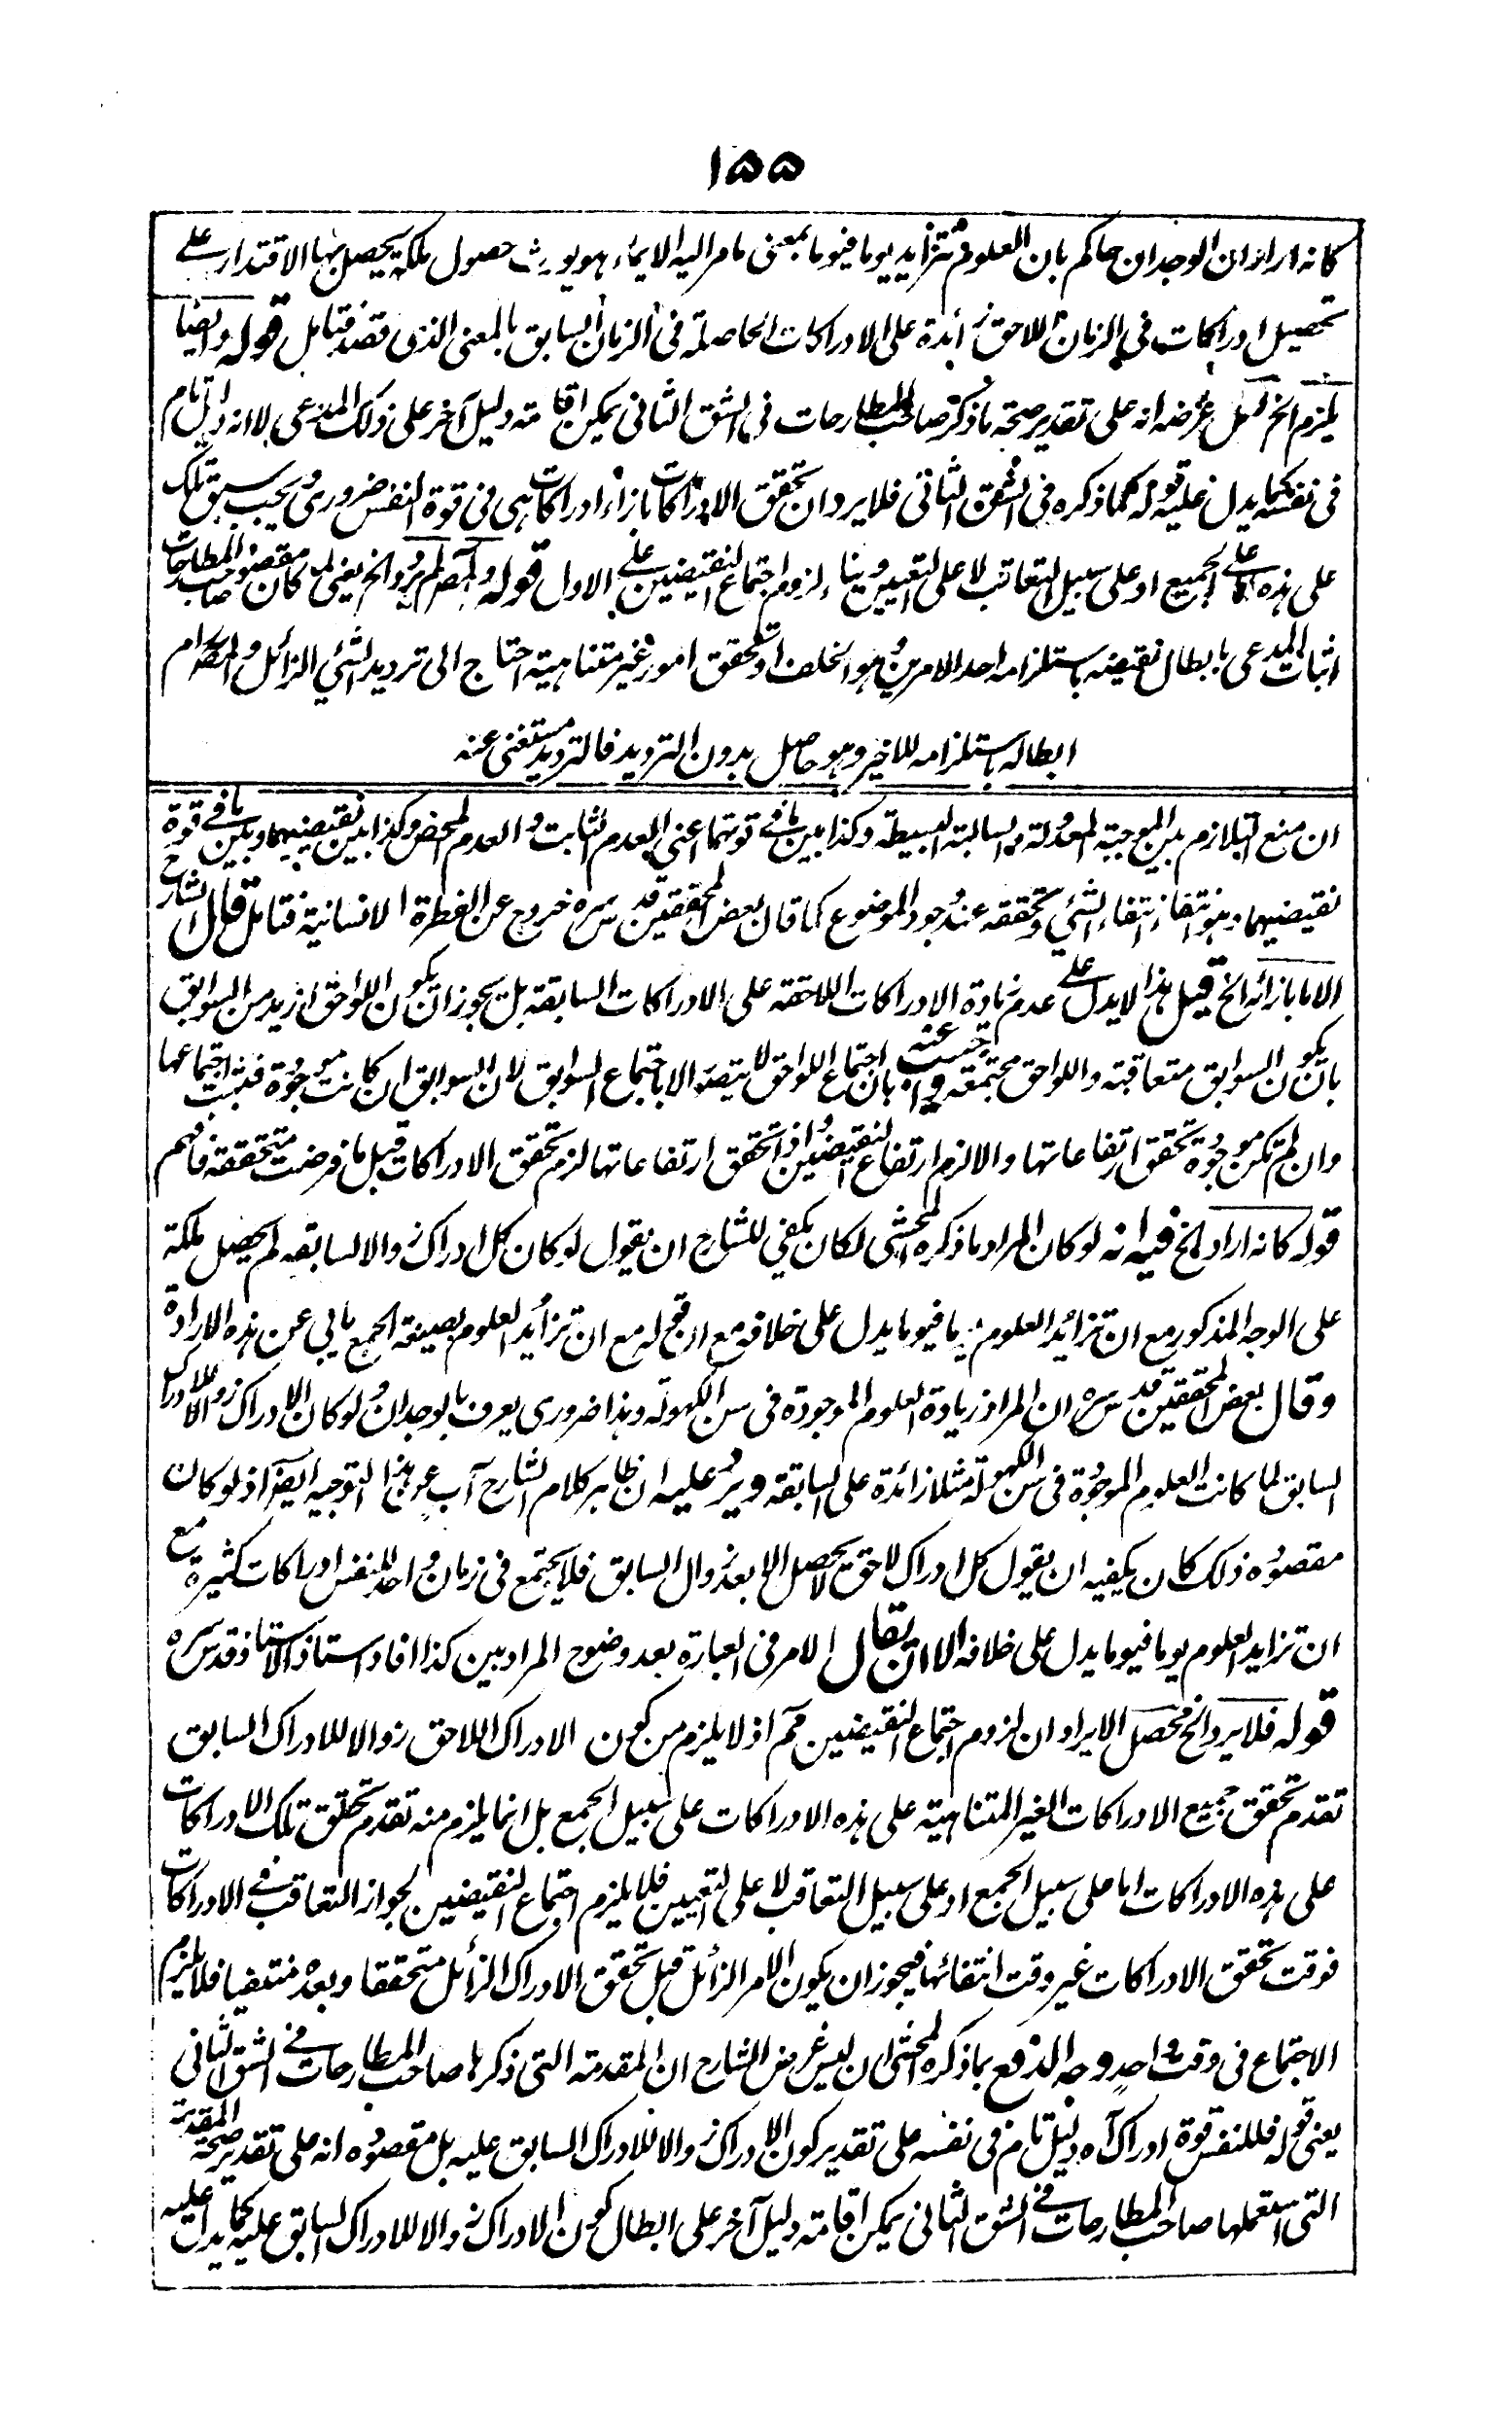 ١٥٥
كانه اراد ان الوجدان حاكم بان العلوم تتزايد يوما فيوما بمعنى ما مر اليه الايماء وهو يورث حصول ملكة يحصل بها الاقتدار على
تحصيل ادراكات في الزمان اللاحق زائدة على الادراكات الحاصلة في الزمان السابق بالمعنى الذي قصد فتامل قوله وايضا
يلزم الخ لعل غرضه انه على تقدير صحة ما ذكره صاحب المطارحات في الشق الثاني يمكن اقامة دليل آخر على ذلك المدعى لا انه دليل تام
في نفسه كما يدل عليه قوله كما ذكره في الشق الثاني فلا يرد ان تحقق الادراكات بازاء ادراكات هي في قوة النفس ضروري ويجب سبق تلك
على هذه اما على الجميع او على سبيل التعاقب لا على التعيين وبناء لزوم اجتماع النقيضين على الاول قوله ولم يردد الخ يعنى لما كان مقصود صاحب المطارحات
اثبات المدعى بابطال نقيضه باستلزامه احد الامرين وهو الخلف او تحقق امور غير متناهية احتاج الى ترديد الشئ الزائل والمصنف رام
ابطاله باستلزامه للاخير وهو حاصل بدون الترديد فالترديد مستغنى عنه
ان منع التلازم بين الموجبة المعدولة والسالبة البسيطة وكذا بين ما في قوتهما اعني العدم الثابت والعدم المحض وكذا بين نقيضيهما وبين ما في قوة
نقيضيهما وهو انتفاء انتفاء الشئ وتحققه عند وجود الموضوع كما قال بعض المحققين قدس سره خروج عن الفطرة الانسانية فتامل قال الشارح
الا ما بازائه الخ قيل هذا لا يدل على عدم زيادة الادراكات اللاحقة على الادراكات السابقة بل يجوز ان يكون اللواحق ازيد من السوابق
بان يكون السوابق متعاقبة واللواحق مجتمعة واجيب عنه بان اجتماع اللواحق لا يتصور الا باجتماع السوابق لان السوابق ان كانت موجودة فيثبت اجتماعها
وان لم تكن موجودة تحقق ارتفاعاتها والا لزم ارتفاع النقيضين واذا تحقق ارتفاعاتها لزم تحقق الادراكات قبل ما فرضت متحققة فافهم
قوله كانه اراد الخ فيه انه لو كان المراد ما ذكره المحشي لكان يكفي للشارح ان يقول لو كان كل ادراك زوالا لسابقه لم يحصل ملكة
على الوجه المذكور مع ان تزايد العلوم يوما فيوما يدل على خلافه مع ان تزايد العلوم بصيغة الجمع يابي عن هذه الارادة
وقال بعض المحققين قدس سره ان المراد زيادة العلوم الموجودة في سن الكهولة وهذا ضروري يعرف بالوجدان ولو كان الادراك زوالا للادراك
السابق لما كانت العلوم الموجودة في سن الكهولة مثلا زائدة على السابقة ويرد عليه ان ظاهر كلام الشارح آب عن هذا التوجيه ايضا اذ لو كان
مقصوده ذلك كان يكفيه ان يقول كل ادراك لاحق لا يحصل الا بعد زوال السابق فلا يجتمع في زمان واحد للنفس ادراكات كثيرة مع
ان تزايد العلوم يوما فيوما يدل على خلافه الا ان يقال الامر في العبارة بعد وضوح المراد هين كذا افاد استاذ الاستاذ قدس سره
قوله فلا يرد الخ محصل الايراد ان لزوم اجتماع النقيضين مم اذ لا يلزم من كون الادراك اللاحق زوالا للادراك السابق
تقدم تحقق جميع الادراكات الغير المتناهية على هذه الادراكات على سبيل الجمع بل انما يلزم منه تقدم تحقق تلك الادراكات
على هذه الادراكات اما على سبيل الجمع او على سبيل التعاقب لا على التعيين فلا يلزم اجتماع النقيضين لجواز التعاقب في الادراكات
فوقت تحقق الادراكات غير وقت انتفائها فيجوز ان يكون الامر الزائل قبل تحقق الادراك الزائل متحققا وبعده منتفيا فلا يلزم
الاجتماع في وقت واحد وجه الدفع بما ذكره المحشي ان ليس غرض الشارح ان المقدمة التي ذكرها صاحب المطارحات في الشق الثاني
يعني قوله فللنفس قوة ادراك آه دليل تام في نفسه على تقدير كون الادراك زوالا للادراك السابق عليه بل مقصوده انه على تقدير صحة المقدمة
التي استعملها صاحب المطارحات في الشق الثاني يمكن اقامة دليل آخر على ابطال كون الادراك زوالا للادراك السابق عليه كما يدل عليه